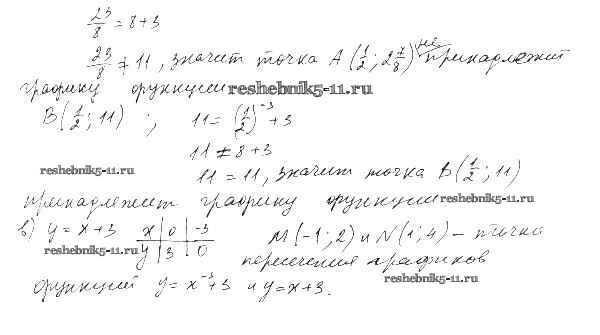 23/8 = 8 + 3
23/8 ≠ 11, значит точка A (1/2; 2 7/8) не принадлежит
графику функции reshebnik5-11.ru
B (1/2; 11) ; 11 = (1/2)^-3 + 3
11 ≠ 8 + 3
reshebnik5-11.ru 11 = 11, значит точка B (1/2; 11)
принадлежит графику функции reshebnik5-11.ru
в) y = x + 3 x | 0 | -3 M (-1; 2) и N (1; 4) – точки
reshebnik5-11.ru y | 3 | 0 пересечения графиков
функций y = x^-3 + 3 и y = x + 3. reshebnik5-11.ru